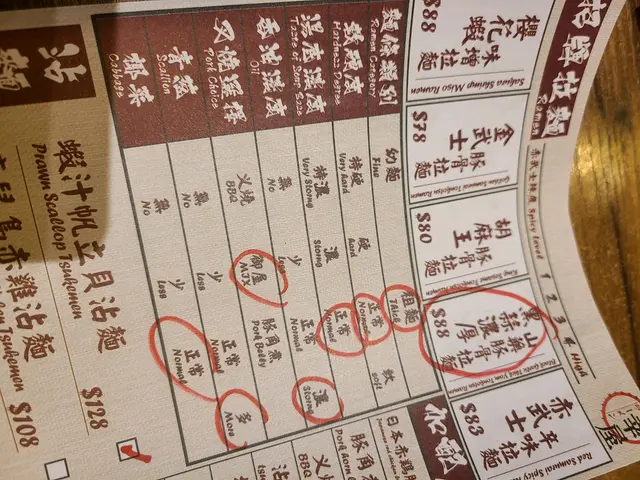 招牌拉麵
Ramen
赤武士辣度 Spicy Level 1 2 3 4 High
櫻花蝦
味噌拉麵
Sakura Shrimp Miso Ramen
$88
金武士
豚骨拉麵
Golden Samurai Tonkotsu Ramen
$78
胡麻王
豚骨拉麵
King Sesame Tonkotsu Ramen
$80
黑蒜
山藥濃厚
豚骨拉麵
Black Garlic Thick Yam Tonkotsu Ramen
$88
赤武士
辛味拉麵
Red Samurai Spicy
$83
麵條類別 幼麵 粗麵
Ramen Category Fine Thick
軟硬度 特硬 硬 正常 軟
Hardness Degree Very hard hard Normal soft
湯底濃度 特濃 濃 正常
Taste of Soup Base Very Storng Storng Normal
香油濃度 無 少 正常 濃
Oil No Less Normal Storng
叉燒選擇 叉燒 御屋 豚角煮
Pork Choice BBQ MIX Pork Belly
青蔥 無 少 正常 多
Scallion No Less Normal More
椰菜 無 少 正常
Cabbage No Less Normal
日本赤鶏
豚角
Pork
叉燒
BBQ
沾麵
蝦汁帆立貝沾麵 $128
Prawn Scallop Tsukemen
赤雞沾麵 $108
Tsukemen